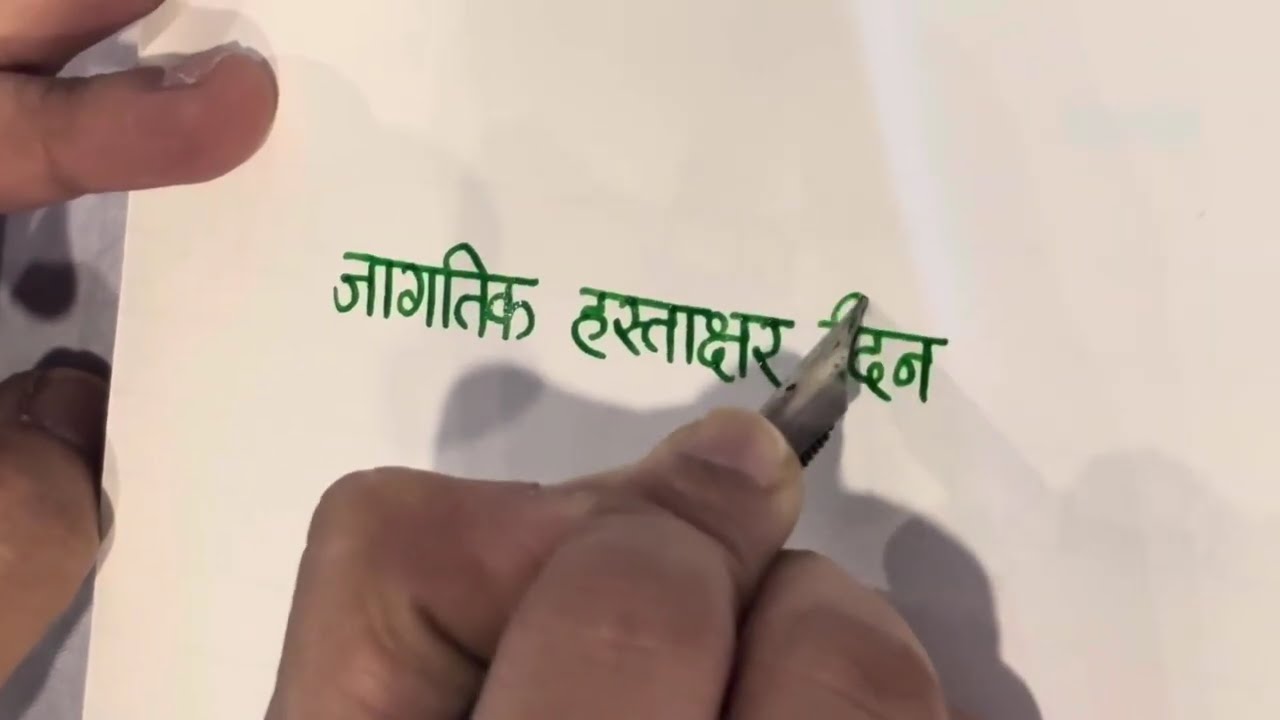 जागतिक हस्ताक्षर दिन